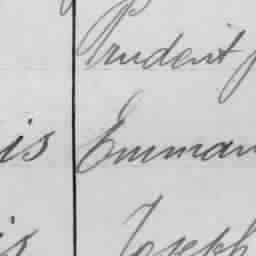 Prudent
is Emman
is Joseph